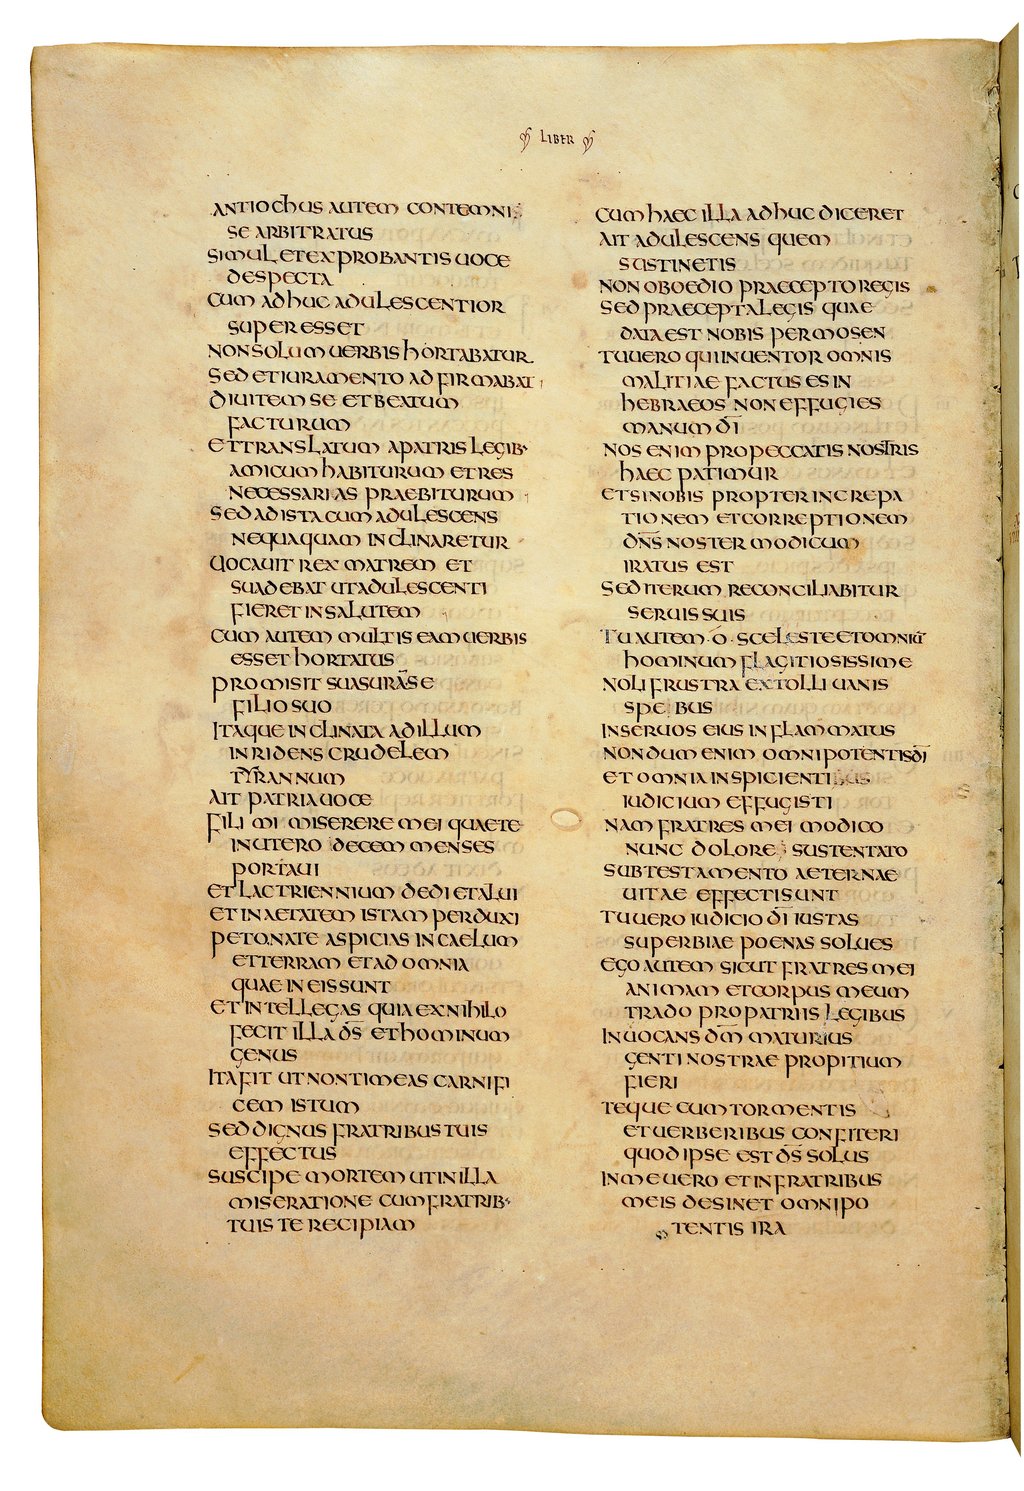 LIBER
ANTIOCHUS AUTEM CONTEMNI
SE ARBITRATUS
SIMUL ET EXPROBANTIS UOCE
DESPECTA
CUM ADHUC ADULESCENTIOR
SUPERESSET
NON SOLUM UERBIS HORTABATUR
SED ET IURAMENTO ADFIRMABAT
DIUITEM SE ET BEATUM
FACTURUM
ET TRANSLATUM A PATRIS LEGIB·
AMICUM HABITURUM ET RES
NECESSARIAS PRAEBITURUM
SED AD ISTA CUM ADULESCENS
NEQUAQUAM INCLINARETUR
UOCAUIT REX MATREM ET
SUADEBAT UT ADULESCENTI
FIERET IN SALUTEM
CUM AUTEM MULTIS EAM UERBIS
ESSET HORTATUS
PROMISIT SUASURĀ SE
FILIO SUO
ITAQUE INCLINATA AD ILLUM
INRIDENS CRUDELEM
TYRANNUM
AIT PATRIA UOCE
FILI MI MISERERE MEI QUAE TE
IN UTERO DECEM MENSES
PORTAUI
ET LAC TRIENNIUM DEDI ET ALUI
ET IN AETATEM ISTAM PERDUXI
PETO NATE ASPICIAS IN CAELUM
ET TERRAM ET AD OMNIA
QUAE IN EIS SUNT
ET INTELLEGAS QUIA EX NIHILO
FECIT ILLA D̄S ET HOMINUM
GENUS
ITA FIT UT NON TIMEAS CARNIFI
CEM ISTUM
SED DIGNUS FRATRIBUS TUIS
EFFECTUS
SUSCIPE MORTEM UT IN ILLA
MISERATIONE CUM FRATRIB·
TUIS TE RECIPIAM
CUM HAEC ILLA ADHUC DICERET
AIT ADULESCENS QUEM
SUSTINETIS
NON OBOEDIO PRAECEPTO REGIS
SED PRAECEPTA LEGIS QUAE
DATA EST NOBIS PER MOSEN
TU UERO QUI INUENTOR OMNIS
MALITIAE FACTUS ES IN
HEBRAEOS NON EFFUGIES
MANUM D̄I
NOS ENIM PRO PECCATIS NOSTRIS
HAEC PATIMUR
ET SI NOBIS PROPTER INCREPA
TIONEM ET CORREPTIONEM
D̄N̄S NOSTER MODICUM
IRATUS EST
SED ITERUM RECONCILIABITUR
SERUIS SUIS
TU AUTEM · O · SCELESTE ET OMNIŪ
HOMINUM FLAGITIOSISSIME
NOLI FRUSTRA EXTOLLI UANIS
SPEBUS
IN SERUOS EIUS INFLAMMATUS
NONDUM ENIM OMNIPOTENTIS D̄I
ET OMNIA INSPICIENTIBUS
IUDICIUM EFFUGISTI
NAM FRATRES MEI MODICO
NUNC DOLORE SUSTENTATO
SUB TESTAMENTO AETERNAE
UITAE EFFECTI SUNT
TU UERO IUDICIO D̄I IUSTAS
SUPERBIAE POENAS SOLUES
EGO AUTEM SICUT FRATRES MEI
ANIMAM ET CORPUS MEUM
TRADO PRO PATRIIS LEGIBUS
INUOCANS D̄M MATURIUS
GENTI NOSTRAE PROPITIUM
FIERI
TEQUE CUM TORMENTIS
ET UERBERIBUS CONFITERI
QUOD IPSE EST D̄S SOLUS
IN ME UERO ET IN FRATRIBUS
MEIS DESINET OMNIPO
TENTIS IRA